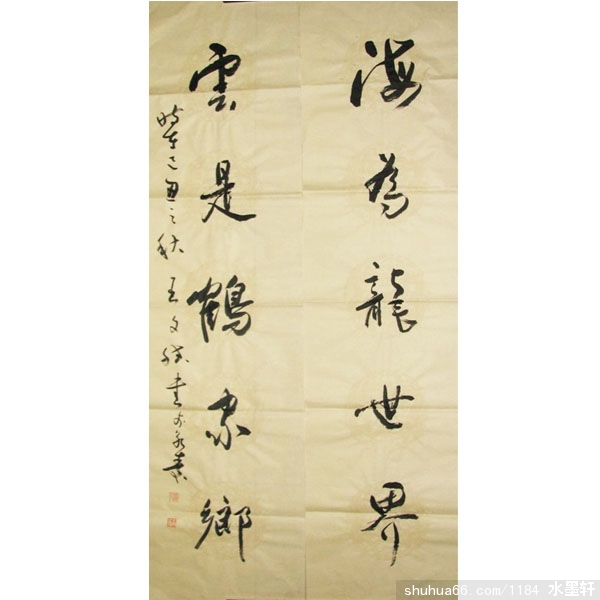 海為龍世界
雲是鶴家鄉
時在己丑之秋 王文
書於
shuhua66.com/1184 水墨轩